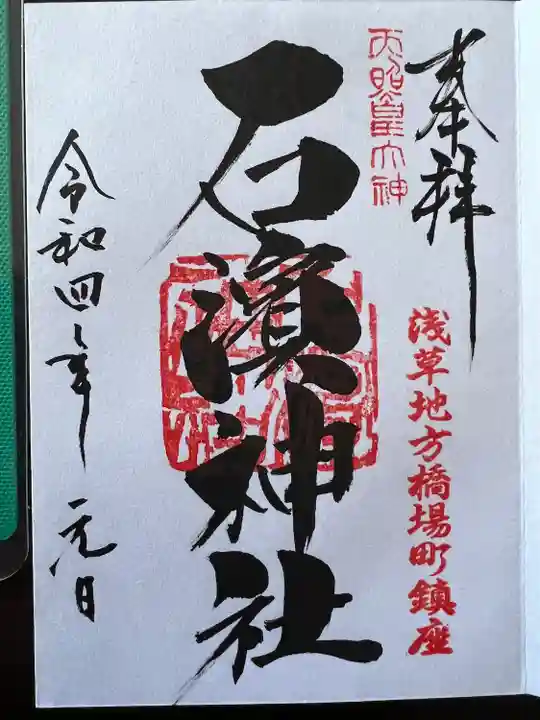 奉拝
浅草地方橋場町鎮座
天照皇大神
石濱神社
令和四年元日